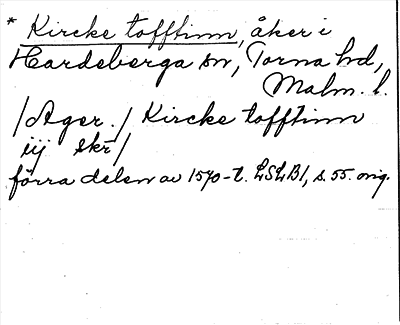 * Kircke tofftinn, åker i
Hardeberga sn, Torna hd,
Malm. l.
/Ager./ Kircke tofftinn
iij skr/
förra delen av 1570-t. LSLB1, s. 55. orig.